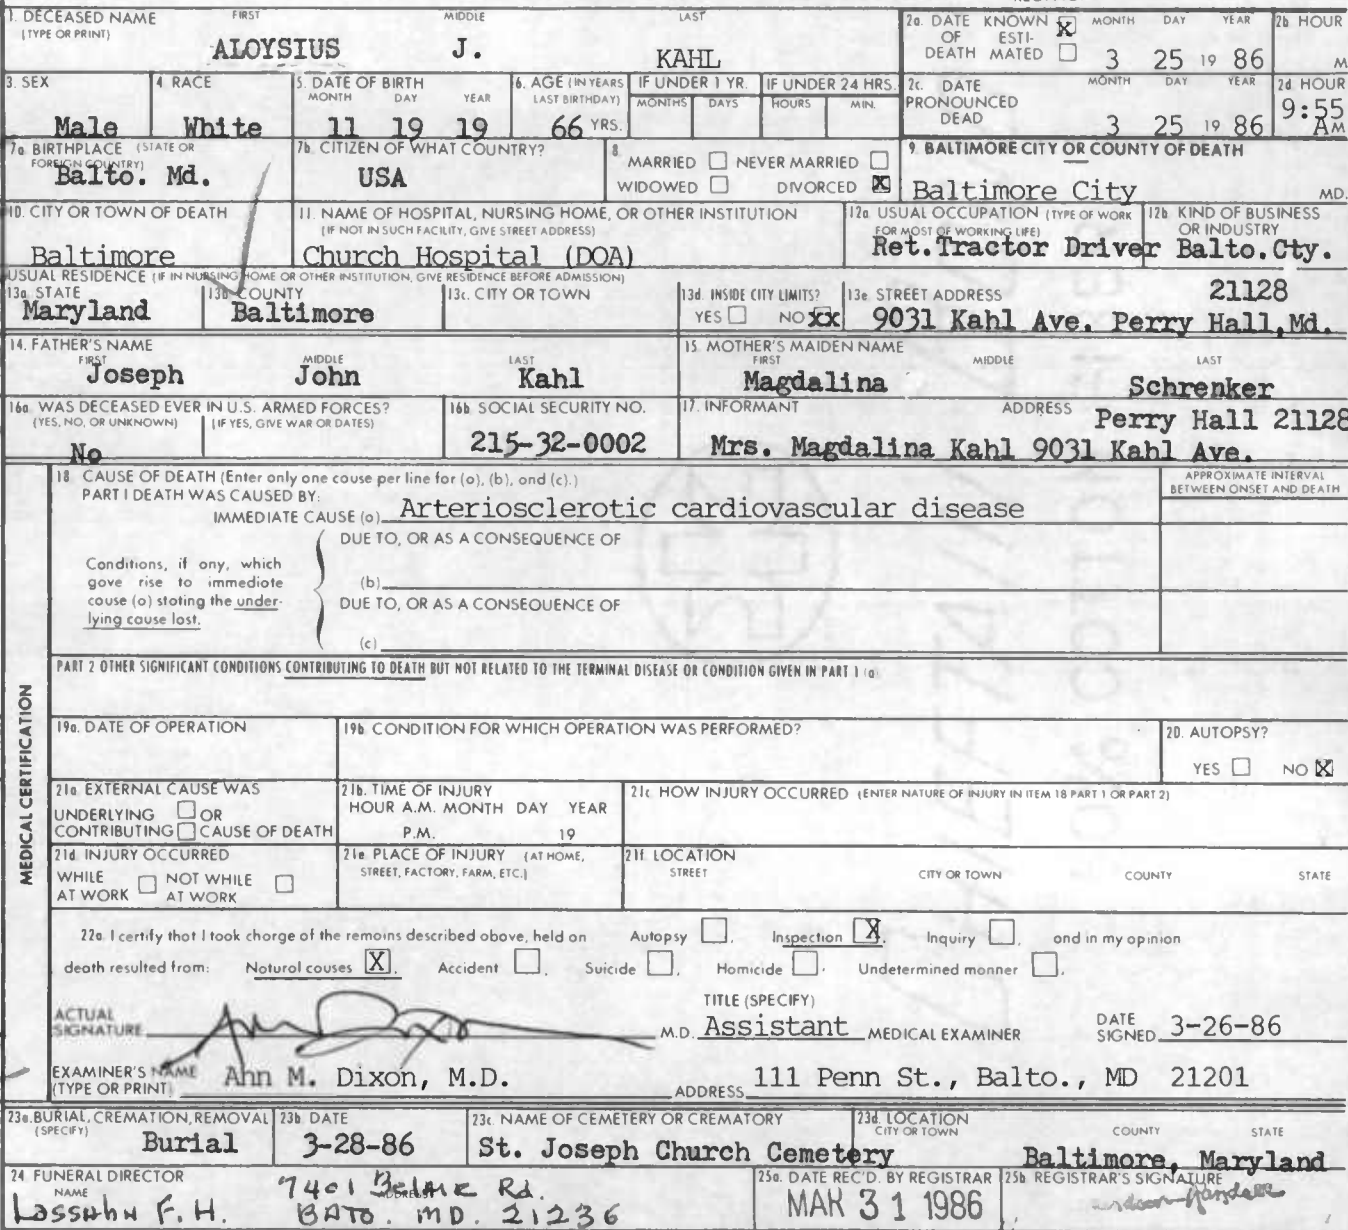 1. DECEASED NAME FIRST MIDDLE LAST
(TYPE OR PRINT)
ALOYSIUS J. KAHL
2a. DATE KNOWN X MONTH DAY YEAR
OF ESTI-
DEATH MATED 3 25 19 86
2b HOUR
M
3. SEX
Male
4 RACE
White
5. DATE OF BIRTH
MONTH DAY YEAR
11 19 19
6. AGE (IN YEARS
LAST BIRTHDAY)
66 YRS.
IF UNDER 1 YR.
MONTHS DAYS
IF UNDER 24 HRS.
HOURS MIN.
2c. DATE MONTH DAY YEAR
PRONOUNCED
DEAD 3 25 19 86
2d HOUR
9:55
AM
7a BIRTHPLACE (STATE OR
FOREIGN COUNTRY)
Balto. Md.
7b CITIZEN OF WHAT COUNTRY?
USA
8.
MARRIED NEVER MARRIED
WIDOWED DIVORCED X
9. BALTIMORE CITY OR COUNTY OF DEATH
Baltimore City MD.
10. CITY OR TOWN OF DEATH
Baltimore
11. NAME OF HOSPITAL, NURSING HOME, OR OTHER INSTITUTION
(IF NOT IN SUCH FACILITY, GIVE STREET ADDRESS)
Church Hospital (DOA)
12a USUAL OCCUPATION (TYPE OF WORK
FOR MOST OF WORKING LIFE)
Ret.Tractor Driver
12b KIND OF BUSINESS
OR INDUSTRY
Balto.Cty.
USUAL RESIDENCE (IF IN NURSING HOME OR OTHER INSTITUTION, GIVE RESIDENCE BEFORE ADMISSION)
13a STATE
Maryland
13b COUNTY
Baltimore
13c. CITY OR TOWN
13d. INSIDE CITY LIMITS?
YES NO XX
13e STREET ADDRESS 21128
9031 Kahl Ave. Perry Hall,Md.
14. FATHER'S NAME
FIRST MIDDLE LAST
Joseph John Kahl
15 MOTHER'S MAIDEN NAME
FIRST MIDDLE LAST
Magdalina Schrenker
16a WAS DECEASED EVER IN U.S. ARMED FORCES?
(YES, NO, OR UNKNOWN) (IF YES, GIVE WAR OR DATES)
No
16b SOCIAL SECURITY NO.
215-32-0002
17. INFORMANT ADDRESS Perry Hall 21128
Mrs. Magdalina Kahl 9031 Kahl Ave.
MEDICAL CERTIFICATION
18 CAUSE OF DEATH (Enter only one cause per line for (a), (b), and (c).)
PART I DEATH WAS CAUSED BY:
IMMEDIATE CAUSE (a) Arteriosclerotic cardiovascular disease
APPROXIMATE INTERVAL
BETWEEN ONSET AND DEATH
DUE TO, OR AS A CONSEQUENCE OF
Conditions, if any, which
gave rise to immediate
cause (a) stating the under-
lying cause last.
(b)
DUE TO, OR AS A CONSEQUENCE OF
(c)
PART 2 OTHER SIGNIFICANT CONDITIONS CONTRIBUTING TO DEATH BUT NOT RELATED TO THE TERMINAL DISEASE OR CONDITION GIVEN IN PART 1 (a)
19a. DATE OF OPERATION
19b CONDITION FOR WHICH OPERATION WAS PERFORMED?
20. AUTOPSY?
YES NO X
21a EXTERNAL CAUSE WAS
UNDERLYING OR
CONTRIBUTING CAUSE OF DEATH
21b. TIME OF INJURY
HOUR A.M. MONTH DAY YEAR
P.M. 19
21c HOW INJURY OCCURRED (ENTER NATURE OF INJURY IN ITEM 18 PART 1 OR PART 2)
21d INJURY OCCURRED
WHILE NOT WHILE
AT WORK AT WORK
21e PLACE OF INJURY (AT HOME,
STREET, FACTORY, FARM, ETC.)
21f. LOCATION
STREET CITY OR TOWN COUNTY STATE
22a. I certify that I took charge of the remains described above, held on Autopsy , Inspection X, Inquiry , and in my opinion
death resulted from: Natural causes X, Accident , Suicide , Homicide , Undetermined manner .
ACTUAL
SIGNATURE M.D.
TITLE (SPECIFY)
Assistant MEDICAL EXAMINER
DATE
SIGNED 3-26-86
EXAMINER'S NAME
(TYPE OR PRINT) Ann M. Dixon, M.D.
ADDRESS 111 Penn St., Balto., MD 21201
23a. BURIAL, CREMATION, REMOVAL
(SPECIFY)
Burial
23b DATE
3-28-86
23c NAME OF CEMETERY OR CREMATORY
St. Joseph Church Cemetery
23d. LOCATION
CITY OR TOWN COUNTY STATE
Baltimore, Maryland
24 FUNERAL DIRECTOR
NAME ADDRESS
Lassahn F.H.
7401 Belair Rd.
BATO. MD. 21236
25a. DATE REC'D. BY REGISTRAR
MAR 31 1986
25b REGISTRAR'S SIGNATURE